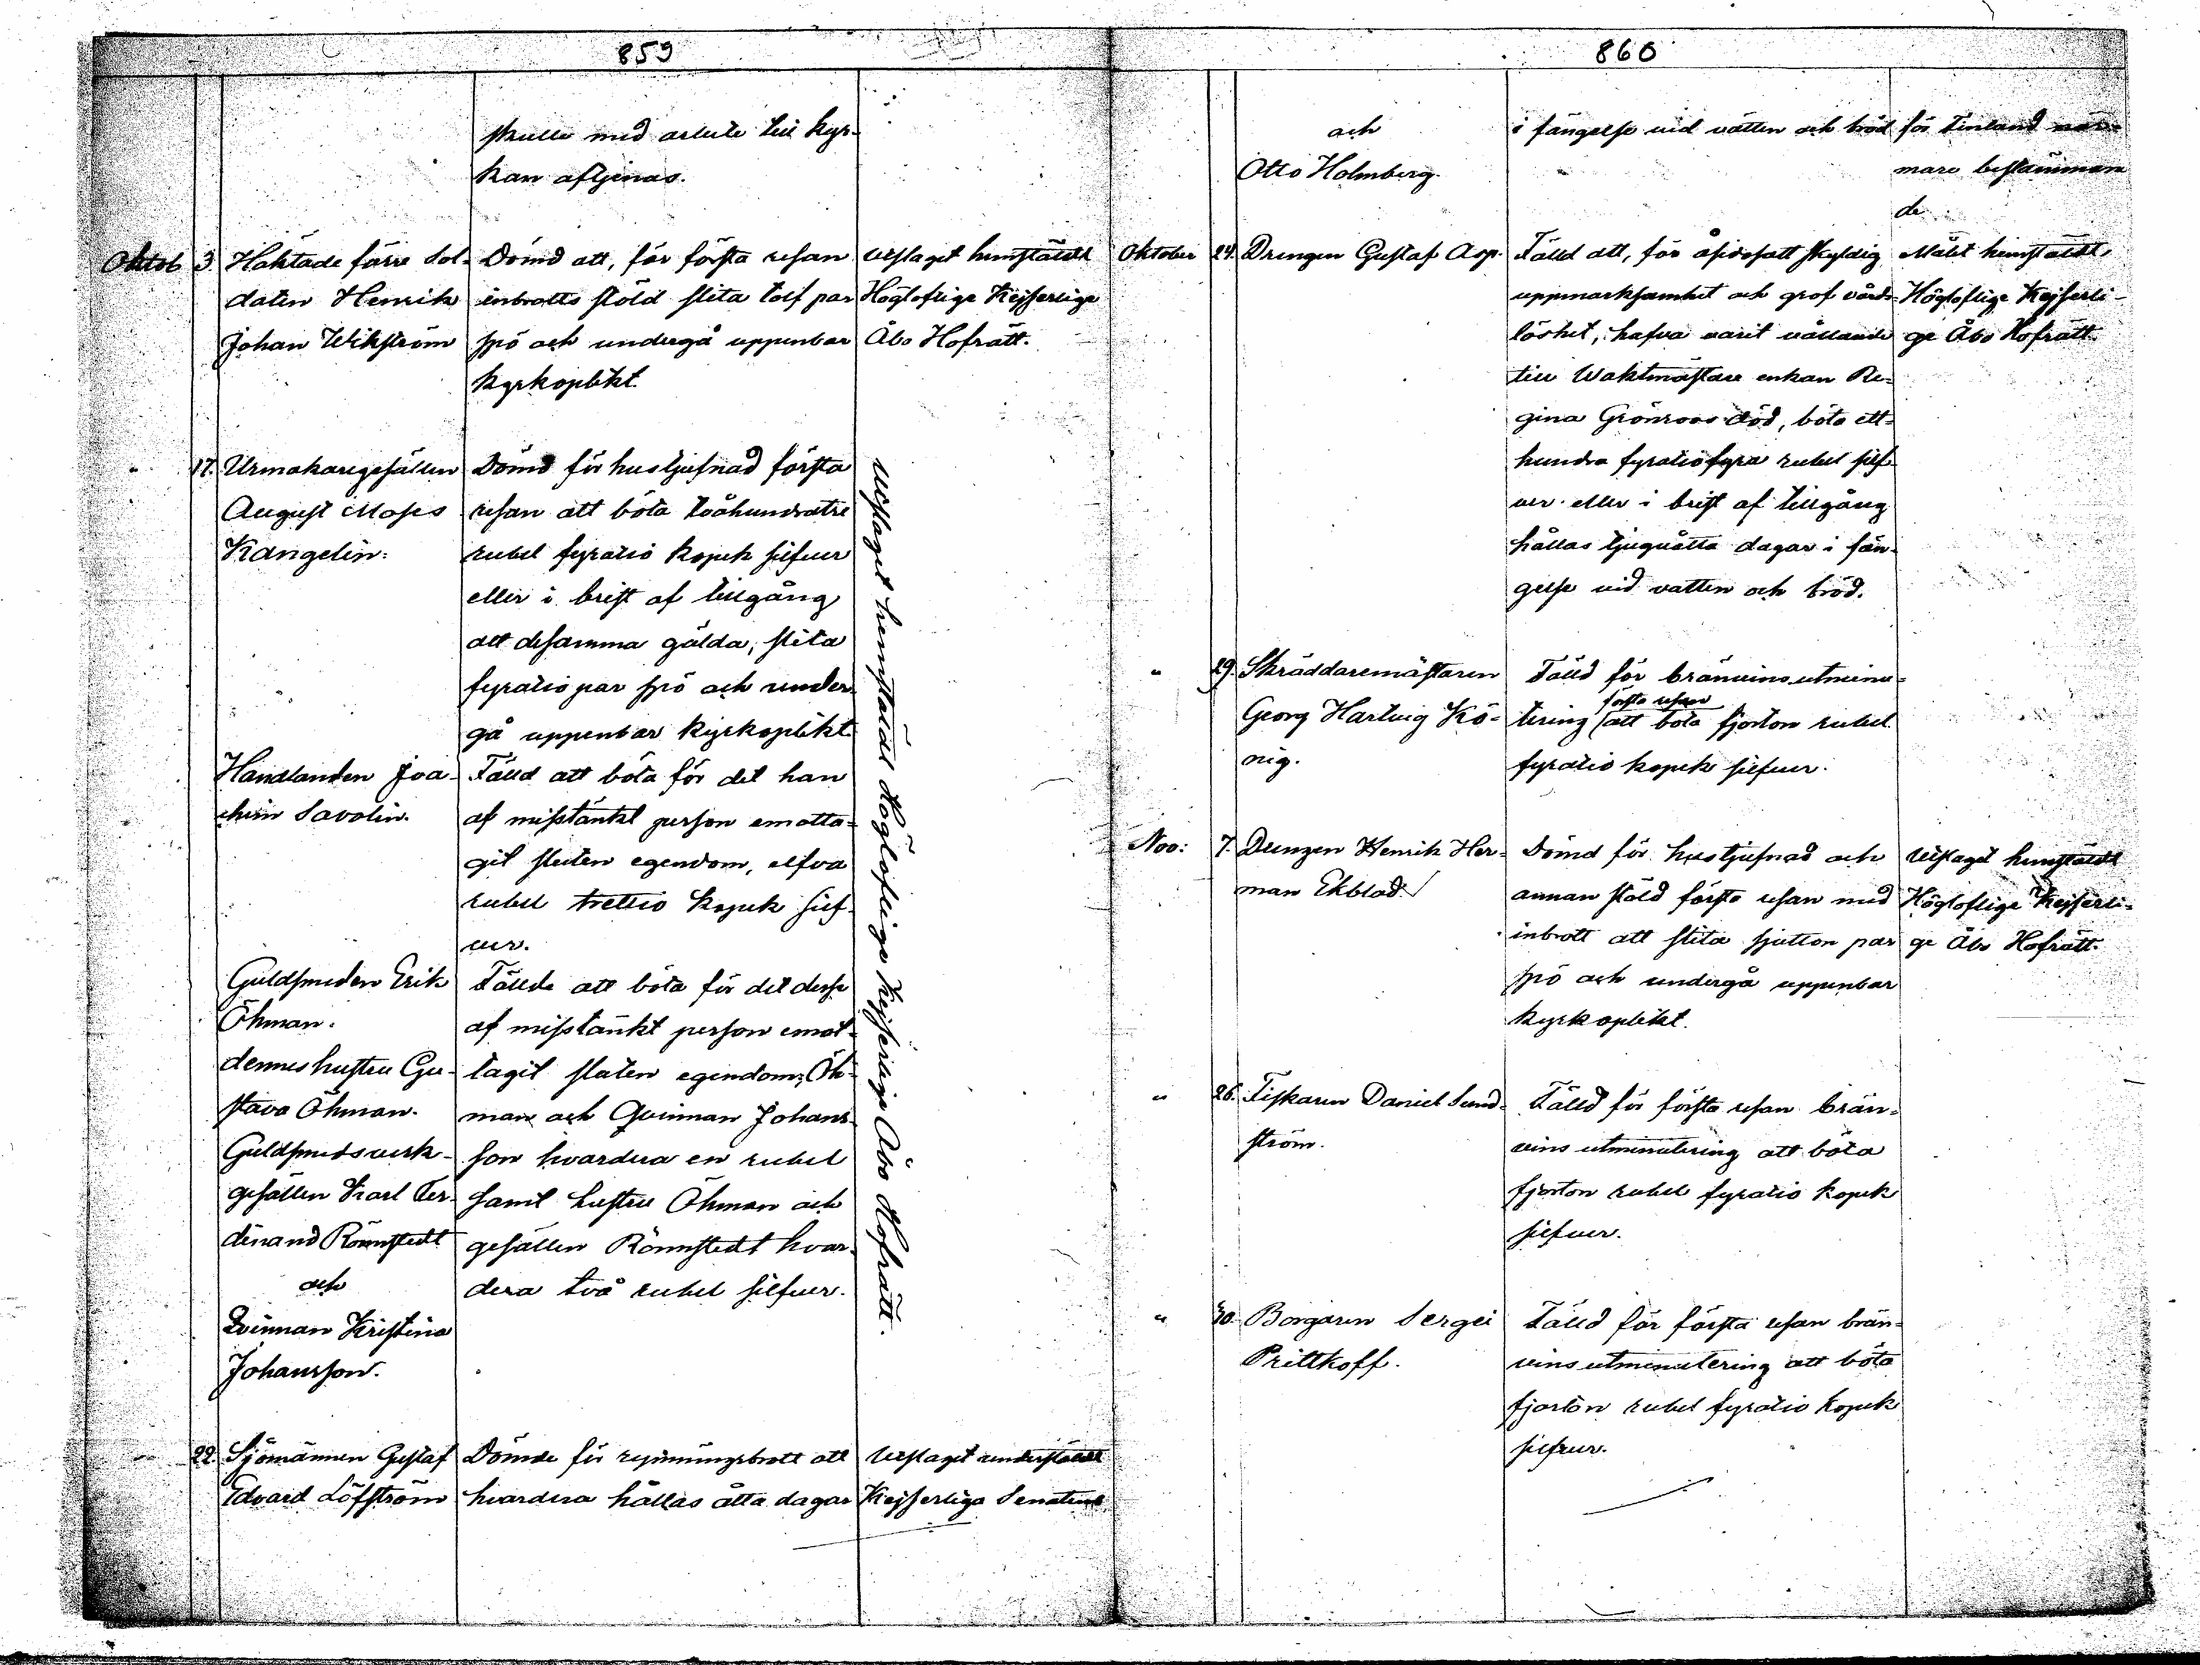 859
skulle med arbete till kyr-
kan aftjenas.
Oktob. 3. Häktade förre Sol-
daten Henrik
Johan Wikström
Dömd att, för första resan
inbrotts stöld slita tolf par
spö och undergå uppenbar
kyrkoplikt.
Utslaget hemstäldt
Högloflige Kejserlige
Åbo Hofrätt.
" 17. Urmakaregesällen
August Moses
Kangelin.
Dömd för hustjufnad första
resan att böta tvåhundratre
rubel fyratio kopek silfver
eller i brist af tillgång
att desamma gälda, slita
fyratio par spö och under-
gå uppenbar kyrkoplikt.
Utslaget hemstäldt Högloflige Kejserlige Åbo Hofrätt.
Handlanden Joa-
chim Savolin.
Fälld att böta för det han
af misstänkt person emotta-
git stulen egendom, elfva
rubel trettio kopek silf-
ver.
Guldsmeden Erik
Öhman.
dennes hustru Gu-
stava Öhman.
Guldsmedsverk-
gesällen Karl Fer-
dinand Rönnstedt
och
Qvinnan Kristina
Johansson.
Fällde att böta för det desse
af misstänkt person emot-
tagit stulen egendom; Öh-
man och Qvinnan Johans-
son hvardera en rubel
samt hustru Öhman och
gesällen Rönnstedt hvar-
dera två rubel silfver.
22. Sjömännen Gustaf
Edvard Löfström
Dömde för rymningsbrott att
hvardera hållas åtta dagar
Utslaget understäldt
Kejserliga Senaten
860
och
Otto Holmberg.
i fängelse vid vatten och bröd
för Finland när-
mare bestämman
de.
Oktober 24. Drengen Gustaf Asp.
Fälld att, för åsidosatt skyldig
uppmärksamhet och grof vårds-
löshet, hafva varit vållande
till Waktmästare enkan Re-
gina Grönroos död, böta ett-
hundra fyratiofyra rubel silf-
ver eller i brist af tillgång
hållas tjuguåtta dagar i fän-
gelse vid vatten och bröd.
Målet hemstäldt
Högloflige Kejserli-
ge Åbo Hofrätt.
" 29. Skräddaremästaren
Georg Hartvig Kö-
nig.
Fälld för bränvins utminu-
första resan
tering att böta fjorton rubel
fyratio kopek silfver.
Nov: 7. Drengen Henrik Her-
man Ekblad.
Dömd för hustjufnad och
annan stöld första resan med
inbrott att slita sjutton par
spö och undergå uppenbar
kyrkoplikt.
Utslaget hemstäldt
Högloflige Kejserli-
ge Åbo Hofrätt.
" 26. Fiskaren Daniel Sund-
ström.
Fälld för första resan brän-
vins utminutering att böta
fjorton rubel fyratio kopek
silfver.
" 30. Borgaren Sergei
Prittkoff.
Fälld för första resan brän-
vins utminutering att böta
fjorton rubel fyratio kopek
silfver.